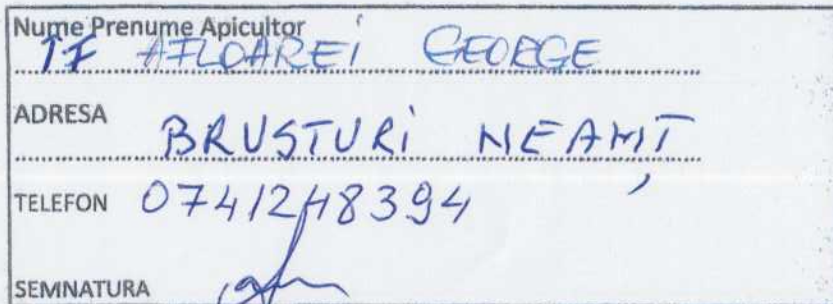 Nume Prenume Apicultor
IF AFLOAREI GEORGE
ADRESA
BRUSTURI NEAMȚ
TELEFON 0741248394
SEMNATURA